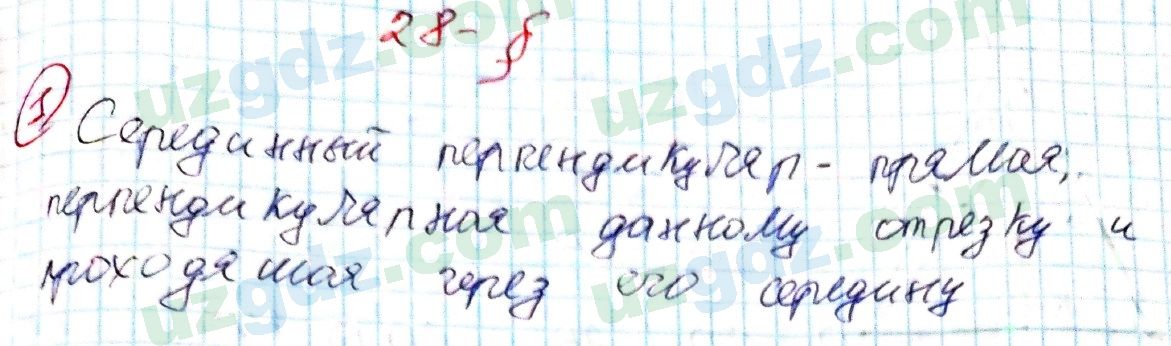 28-§
1 Серединный перпендикуляр - прямая,
перпендикулярная данному отрезку и
проходяшая через его середину
uzgdz.com uzgdz.com uzgdz.com
uzgdz.com uzgdz.com uzgdz.com